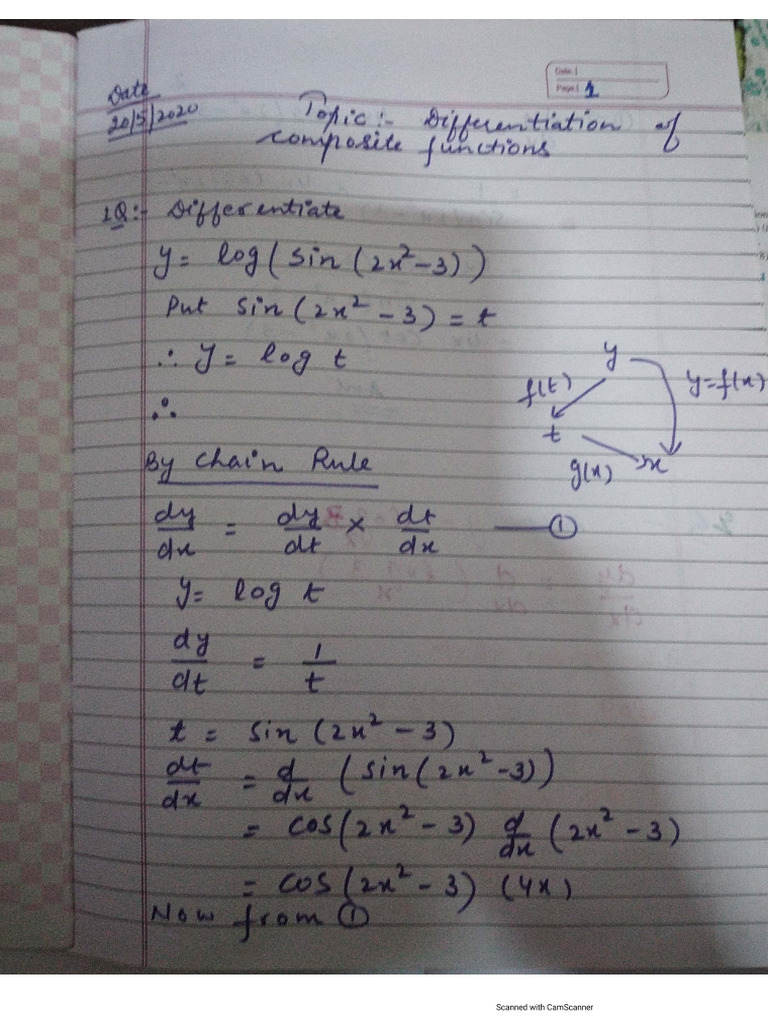 Date
20/5/2020
Date
Page 1
Topic :- Differentiation of
composite functions
1Q:- Differentiate
y = log(sin(2x² - 3))
Put sin(2x² - 3) = t
∴ y = log t
∴
y
f(t)
y=f(x)
t
g(x)
x
By Chain Rule
dy/dx = dy/dt × dt/dx —— ①
y = log t
dy/dt = 1/t
t = sin(2x² - 3)
dt/dx = d/dx (sin(2x² - 3))
= cos(2x² - 3) d/dx (2x² - 3)
= cos(2x² - 3) (4x)
Now from ①
Scanned with CamScanner